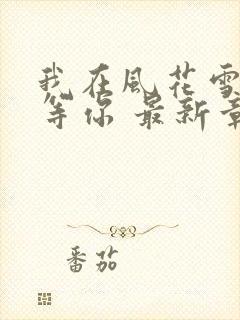 我在風花雪
等你 最新章
番茄